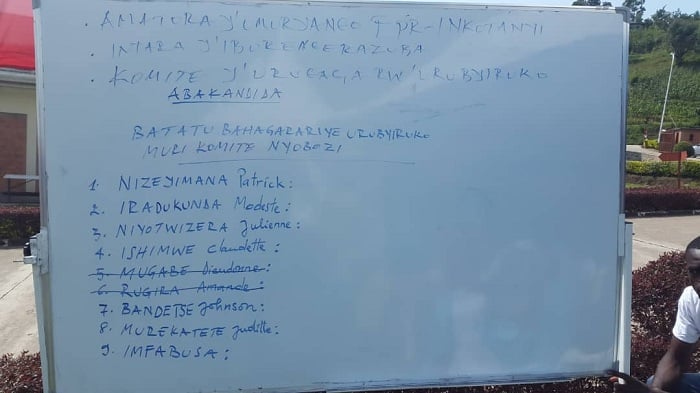 . AMATORA Y'UMURYANGO FPR-INKOTANYI
. INTARA Y'IBURENGERAZUBA
. KOMITE Y'URUGAGA RW'URUBYIRUKO
ABAKANDIDA
BATATU BAHAGARARIYE URUBYIRUKO
MURI KOMITE NYOBOZI
1. NIZEYIMANA Patrick:
2. IRADUKUNDA Modeste:
3. NIYOTWIZERA Julienne:
4. ISHIMWE Claudette:
5. MUGABE Dieudonne:
6. RUGIRA Amande:
7. BANDETSE Johnson:
8. MUREKATETE Juditte:
9. IMFABUSA: